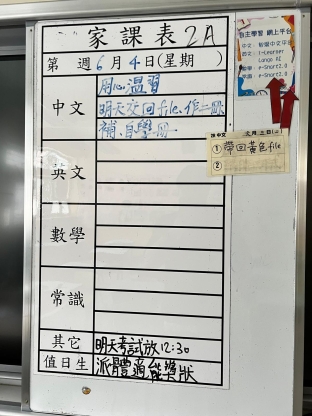 家課表 2A
第 週 6 月 4 日(星期 )
中文
用心溫習
明天交回file、作二、
補、自學冊
英文
數學
常識
其它
明天考試放12:30
值日生
派體適能獎狀
自主學習 網上平台
e-Smart2.0
① 帶回黃色file
②